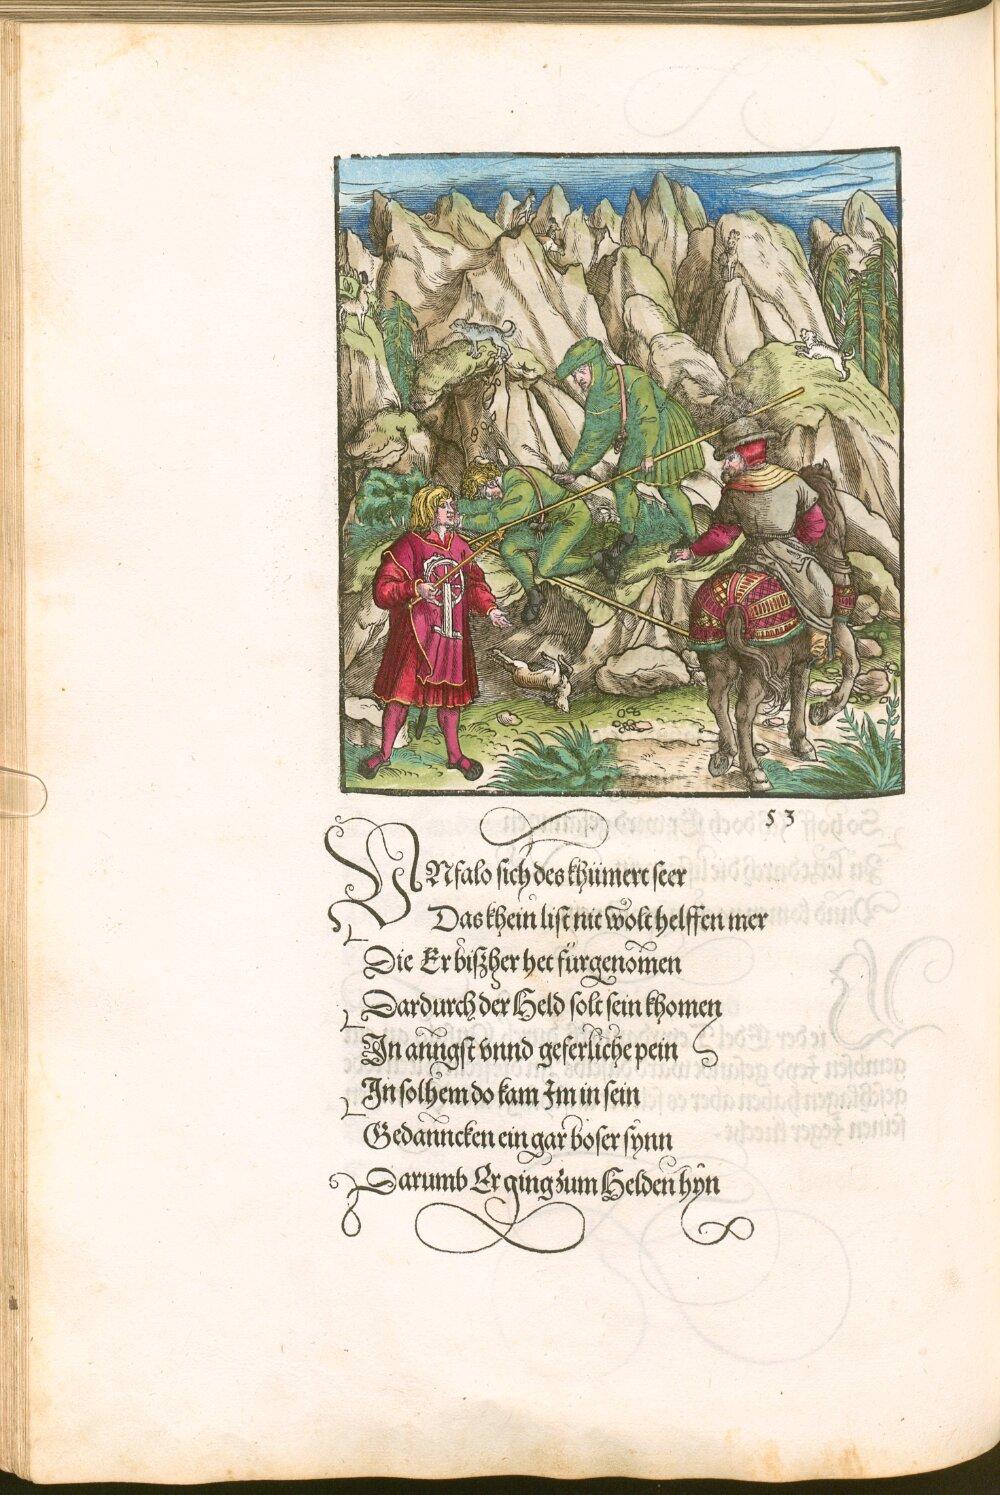 53
VNfalo sich des khümert seer
Das khein list nit wolt helffen mer
Die Er biszher het fürgenomen
Dardurch der Held solt sein khomen
In anngst vnnd geferliche pein
In solhem do kam Im in sein
Gedanncken ein gar boser synn
Darumb Er ging zum Helden hyn